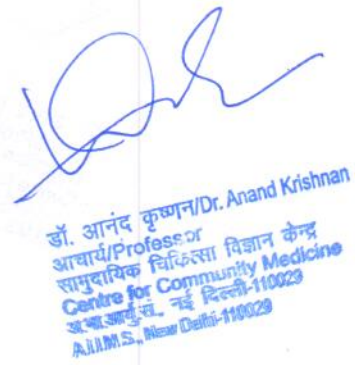 डॉ. आनंद कृष्णन/Dr. Anand Krishnan
आचार्य/Professor
सामुदायिक चिकित्सा विज्ञान केन्द्र
Centre for Community Medicine
अ.भा.आयु.सं., नई दिल्ली-110029
A.I.I.M.S., New Delhi-110029